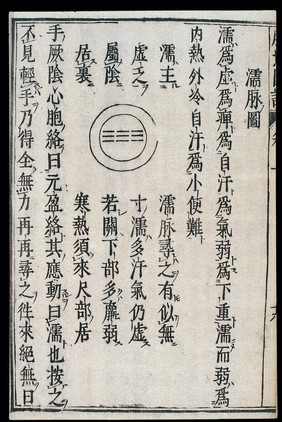 濡脉圖
濡為虛為痺為自汗為氣弱為下重濡而弱為
内熱外冷自汗為小便難
濡主
虛乏
屬陰
居裏
濡脉尋之有似無
寸濡多汗氣仍虛
若關下部多廉弱
寒熱須來尺部居
手厥陰心胞絡曰元盈絡其應動曰濡也按之
不見輕手乃得全無力再再尋之徃來絕無曰